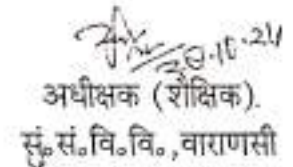 30.10.24
अधीक्षक (शैक्षिक).
सं.सं.वि.वि.,वाराणसी